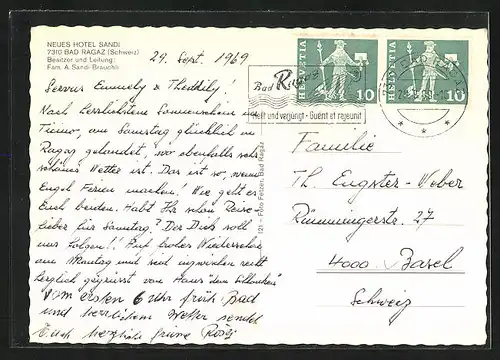 NEUES HOTEL SANDI
7310 BAD RAGAZ (Schweiz)
Besitzer und Leitung:
Fam. A. Sandi-Brauchli
29. Sept. 1969
Servus
Nach herrlichstem Sonnenschein im
am Samstag glücklich in
Ragaz gelandet, wo ebenfalls sehr
schönes Wetter ist. Das ist so, wenn
Engel Ferien machen. Wie geht es
Euch beiden. Habt Ihr schon Reise-
fieber für Samstag? Der Dick soll
nur folgen! Auf frohes Wiedersehen
am Montag und seid inzwischen recht
herzlich gegrüsst von Haus
Vom ersten 6 Uhr früh Bad
und herrlichem Wetter sendet
Euch herzliche Grüsse Rosy
HELVETIA 10
HELVETIA 10
Bad Ragaz
heilt und verjüngt - Guérit et rajeunit
121 - Foto Fetzer, Bad Ragaz
Familie
Th. Engster-Weber
Rümmingerstr. 27
4000 Basel
Schweiz